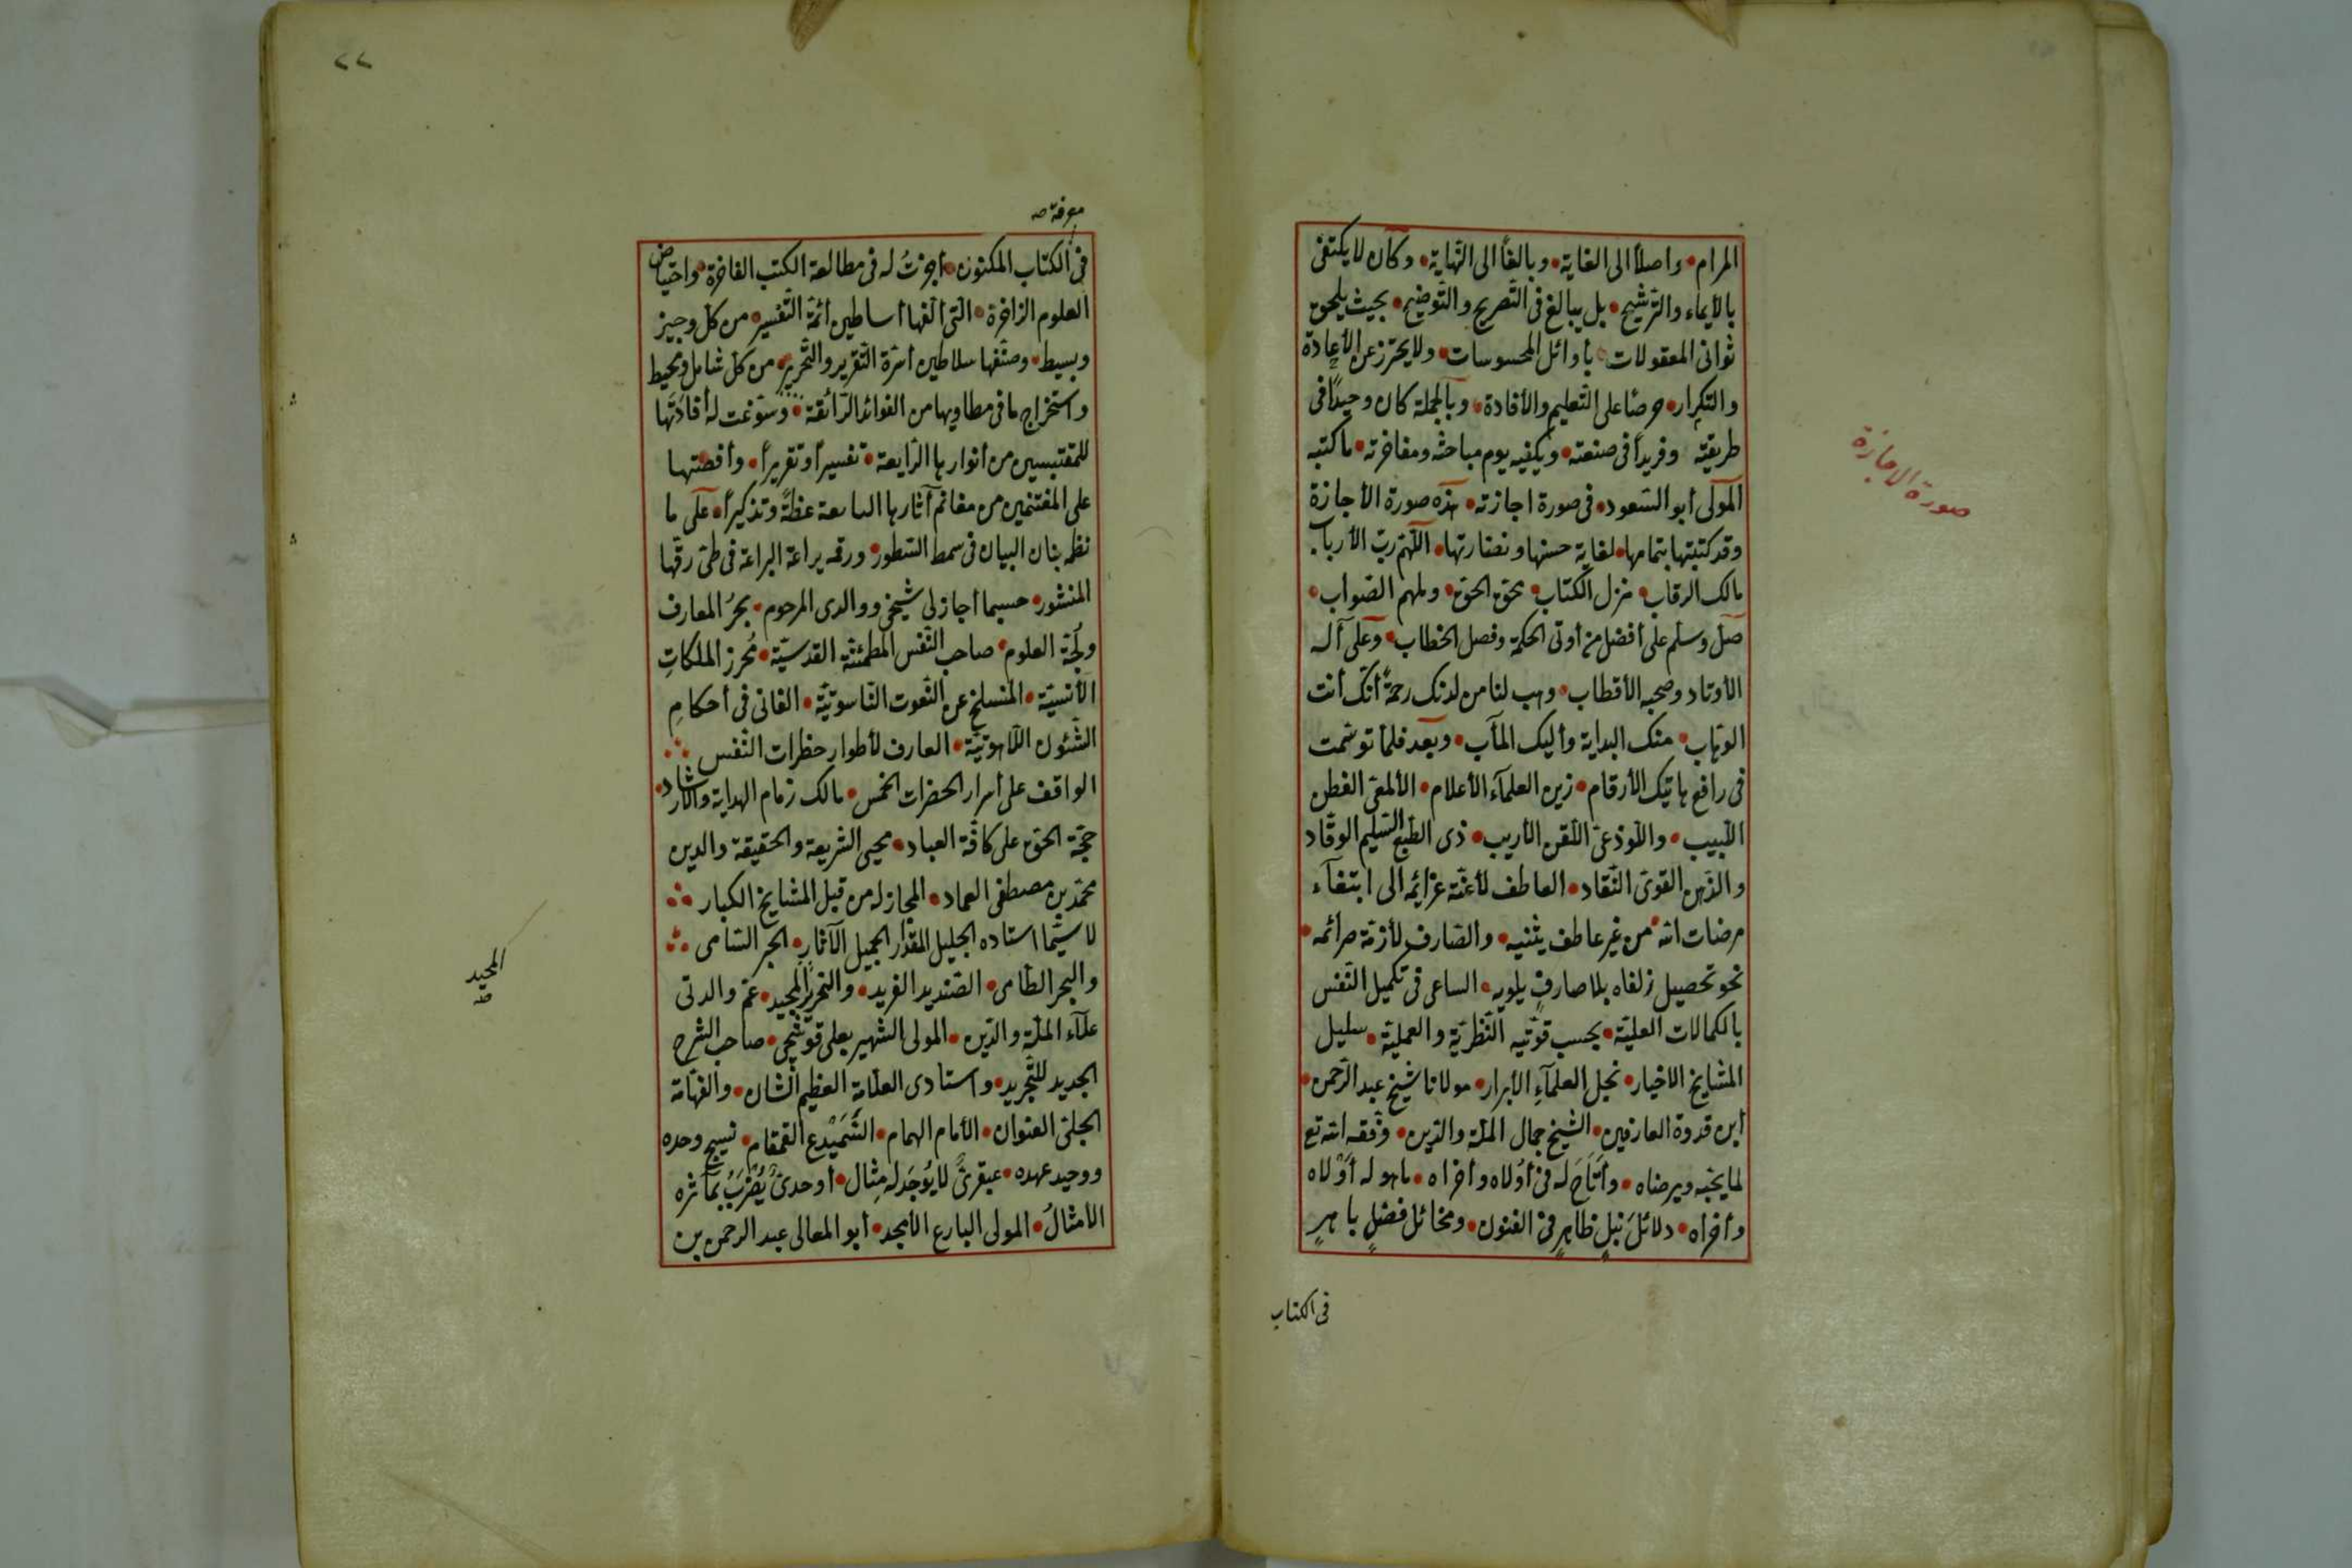 المرام • واصلاً الى الغاية • وبالغًا الى النّهاية • وكان لا يكتفى
بالأيماء والتّرشيح • بل يبالغ فى التّصريح والتّوضيح • بحيث يلحق
ثوانى المعقولات • بأوائل المحسوسات • ولا يحترز عن الأعادة
والتكرار • حرصًا على التّعليم والأفادة • وبالجملة كان وحيدًا فى
طريقته وفريدًا فى صنعته • ويكفيه يوم مباحثه ومفاخرته • ما كتبه
المولى أبو السّعود • فى صورة اجازته • هذه صورة الأجازة
وقد كتبتها بتمامها • لغاية حسنها ونضارتها • اللّهمّ ربّ الأرباب
مالك الرقاب • منزل الكتاب • بحق الحق • وملهم الصّواب •
صلّ وسلّم على أفضل من أوتى الحكمة وفصل الخطاب • وعلى آله
الأوتاد وصحبه الأقطاب • وهب لنا من لدنك رحمةً أنّك أنت
الوهّاب • منك البداية وأليك المآب • وبعد فلمّا توسّمت
فى رافع هاتيك الأرقام • زين العلمآء الأعلام • الألمعىّ الفطن
اللّبيب • واللّوذعىّ اللّقن الأريب • ذى الطّبع السّليم الوقّاد
والذّهن القوىّ النّقاد • العاطف لأعنّة عزائمه الى ابتغآء
مرضات الله • من غير عاطف يثنيه • والصّارف لأزمّة صرائمه •
نحو تحصيل زلفاه بلا صارفٍ يلويه • الساعى فى تكميل النّفس
بالكمالات العليّة • بحسب قوّتيه النّظريّة والعمليّة • سليل
المشايخ الاخيار • نجل العلمآءِ الأبرار • مولانا شيخ عبد الرّحمن •
أبن قدوة العارفين • الشّيخ جمال الملّة والدّين • وفّقه الله تع
لما يحبّه ويرضاه • وأتاحَ له فى أولاه وأخراه • ما هو له أوْلاه
وأخراه • دلائلَ نبلٍ ظاهرٍ فى الفنون • ومخائلَ فضلٍ باهرٍ
فى الكتاب
صورة الاجازة
٢٢
معرفة صه
فى الكتاب المكنون • أجزتُ له فى مطالعة الكتب الفاخرة • واحتياض
العلوم الزاخرة • الّتى ألّفها أساطين أئمّة التّفسير • من كلّ وجيز
وبسيط • وصنّفها سلاطين أسرّة التّقرير والتّحرير • من كلّ شامل ومحيط
واستخراج ما فى مطاويها من الفوائد الرّائقة • وسوّغت له أفادتها
للمقتبسين من أنوارها الرّايعة • تفسيرًا وتقريرًا • وأفضتها
على المغتنمين من مغانم آثارها عظةً وتذكيرًا • على ما
نظمه بنان البيان فى سمط السّطور • ورقمه يراعة البراعة فى طىّ رقّها
المنشور • حسبما أجاز لى شيخى ووالدى المرحوم • بحرُ المعارف
ولجّة العلوم • صاحب النّفس المطمئنّة القدسيّة • مُحرز الملكاتِ
الأنسيّة • المنسلخ عن النّعوت النّاسوتيّة • الفانى فى أحكامِ
الشّئون اللّاهوتيّة • العارف لأطوار خطرات النّفس
الواقف على أسرار الحضرات الخمس • مالك زمام الهداية والارشاد •
حجّة الحق على كافّة العباد • محيى الشريعة والحقيقة والدين
محمّد بن مصطفى العماد • المجاز له من قبل المشايخ الكبار
لا سيّما استاده الجليل المقدار الجميل الآثار • الحبر السّامى
والبحر الطّامى • الصّنديد الفريد • والنحرير المجيد • عمّ والدتى
علآء الملّة والدّين • المولى الشهير بعلى قوشجى • صاحب الشرح
الجديد للتّجريد • واستادى العلّامة العظيم الشان • والفهّامة
الجلىّ العنوان • الأمام الهمام • السَّمَيْدع القمقام • نسيج وحده
ووحيد عهده • عبقرىٌّ لا يُوجَد له مِثال • أوحدىٌّ يُضرَبُ بمآثره
الأمثالُ • المولى البارع الأمجد • أبو المعالى عبد الرحمن بن
المجيد
صه